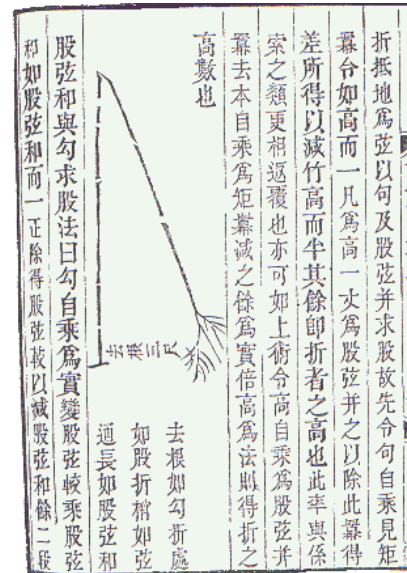 折抵地爲弦以句及股弦并求股故先令句自乘見矩
冪合如高而一凡爲高一丈爲股弦并之以除此冪得
差所得以減竹高而半其餘卽折者之高也此率與係
索之類更相返覆也亦可如上術令高自乘爲股弦并
冪去本自乘爲矩冪減之餘爲實倍高爲法則得折之
高數也
去根如勾折處
如股折梢如弦
通長如股弦和
去根三尺
股弦和與勾求股法曰勾自乘爲實變股弦較乘股弦
和如股弦和而一正除得股弦較以減股弦和餘二段